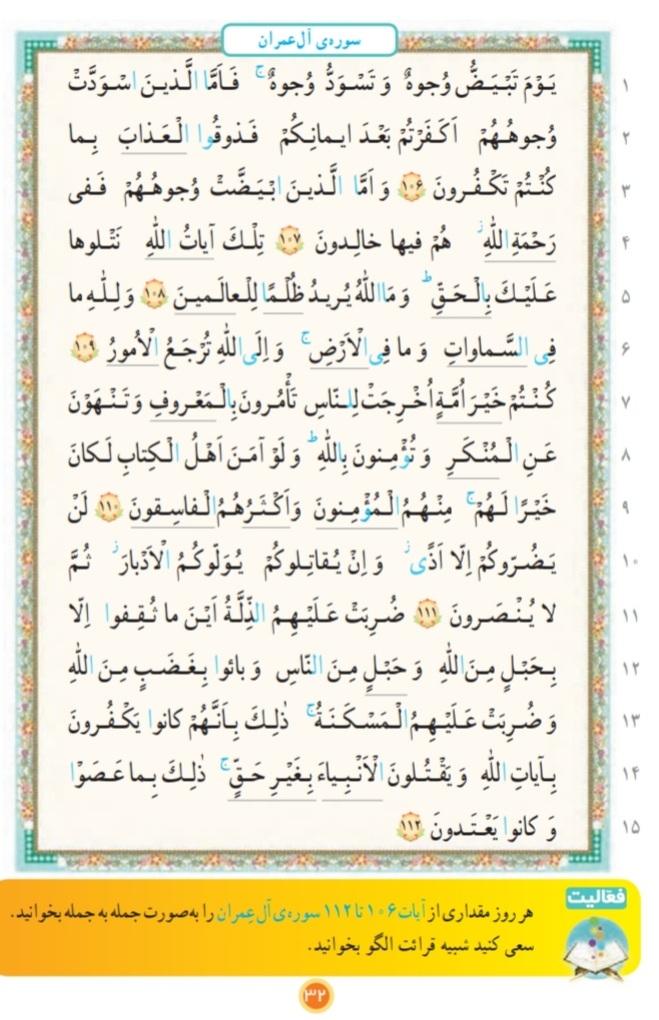 سوره‌ی آل‌عمران
۱ یَوْمَ تَبْیَضُّ وُجوهٌ وَ تَسْوَدُّ وُجوهٌ ۚ فَاَمَّا الَّذینَ اسْوَدَّتْ
۲ وُجوهُهُمْ اَکَفَرْتُمْ بَعْدَ ایمانِکُمْ فَذوقُوا الْعَذابَ بِما
۳ کُنْتُمْ تَکْفُرونَ ۱۰۶ وَ اَمَّا الَّذینَ ابْیَضَّتْ وُجوهُهُمْ فَفی
۴ رَحْمَةِ اللّٰهِ ز هُمْ فیها خالِدونَ ۱۰۷ تِلْکَ آیاتُ اللّٰهِ نَتْلوها
۵ عَلَیْکَ بِالْحَقِّ ط وَ مَا اللّٰهُ یُریدُ ظُلْمًا لِلْعالَمینَ ۱۰۸ وَ لِلّٰهِ ما
۶ فِی السَّماواتِ وَ ما فِی الْاَرْضِ ۚ وَ اِلَی اللّٰهِ تُرْجَعُ الْاُمورُ ۱۰۹
۷ کُنْتُمْ خَیْرَ اُمَّةٍ اُخْرِجَتْ لِلنّاسِ تَأْمُرونَ بِالْمَعْروفِ وَ تَنْهَوْنَ
۸ عَنِ الْمُنْکَرِ وَ تُؤْمِنونَ بِاللّٰهِ ط وَ لَوْ آمَنَ اَهْلُ الْکِتابِ لَکانَ
۹ خَیْرًا لَهُمْ ۚ مِنْهُمُ الْمُؤْمِنونَ وَ اَکْثَرُهُمُ الْفاسِقونَ ۱۱۰ لَنْ
۱۰ یَضُرّوکُمْ اِلّا اَذًی ز وَ اِنْ یُقاتِلوکُمْ یُوَلّوکُمُ الْاَدْبارَ ز ثُمَّ
۱۱ لا یُنْصَرونَ ۱۱۱ ضُرِبَتْ عَلَیْهِمُ الذِّلَّةُ اَیْنَ ما ثُقِفوا اِلّا
۱۲ بِحَبْلٍ مِنَ اللّٰهِ وَ حَبْلٍ مِنَ النّاسِ وَ بائوا بِغَضَبٍ مِنَ اللّٰهِ
۱۳ وَ ضُرِبَتْ عَلَیْهِمُ الْمَسْکَنَةُ ۚ ذٰلِکَ بِاَنَّهُمْ کانوا یَکْفُرونَ
۱۴ بِآیاتِ اللّٰهِ وَ یَقْتُلونَ الْاَنْبِیاءَ بِغَیْرِ حَقٍّ ۚ ذٰلِکَ بِما عَصَوْا
۱۵ وَ کانوا یَعْتَدونَ ۱۱۲
فعّالیت
هر روز مقداری از آیات ۱۰۶ تا ۱۱۲ سوره‌ی آل عِمران را به‌صورت جمله به جمله بخوانید.
سعی کنید شبیه قرائت الگو بخوانید.
۳۲